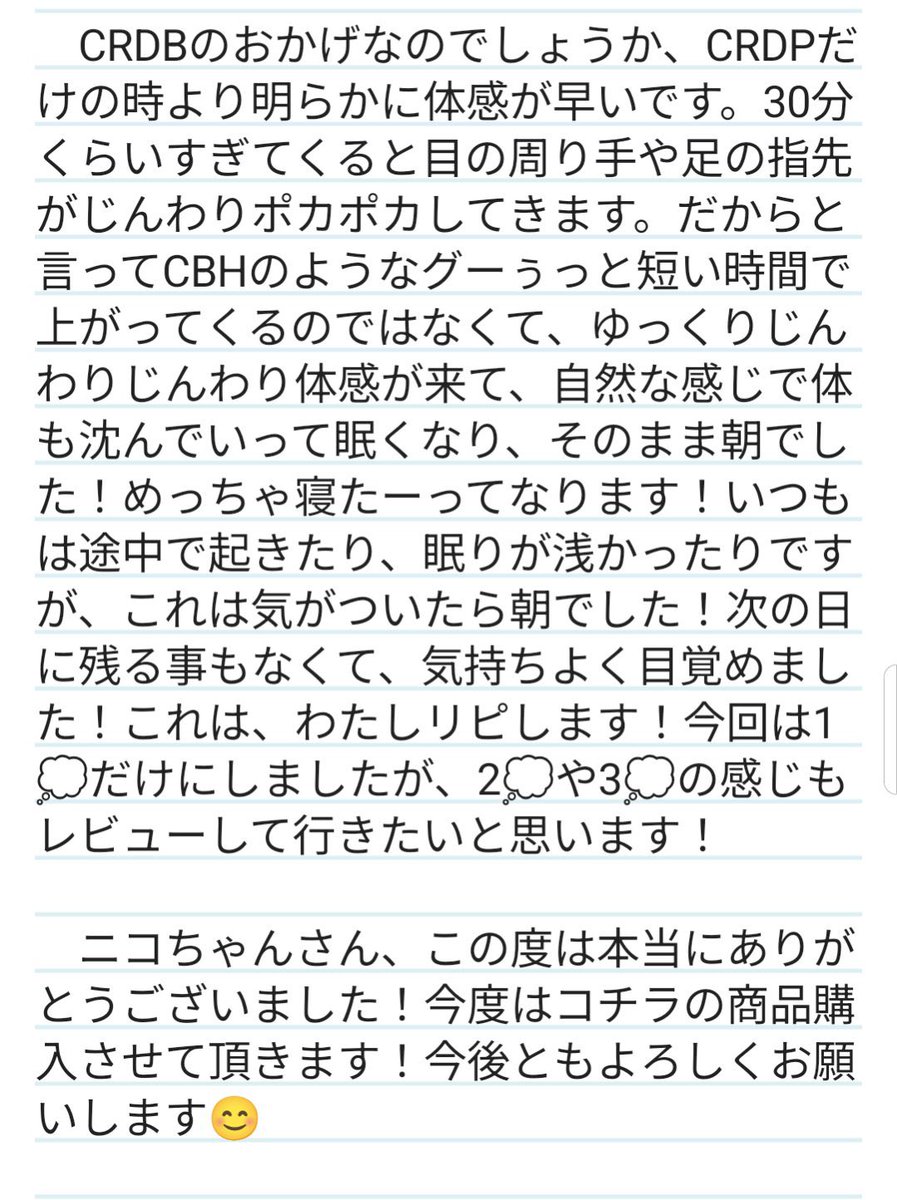 CRDBのおかげなのでしょうか、CRDPだ
けの時より明らかに体感が早いです。30分
くらいすぎてくると目の周り手や足の指先
がじんわりポカポカしてきます。だからと
言ってCBHのようなグーぅっと短い時間で
上がってくるのではなくて、ゆっくりじん
わりじんわり体感が来て、自然な感じで体
も沈んでいって眠くなり、そのまま朝でし
た！めっちゃ寝たーってなります！いつも
は途中で起きたり、眠りが浅かったりです
が、これは気がついたら朝でした！次の日
に残る事もなくて、気持ちよく目覚めまし
た！これは、わたしリピします！今回は1
💭だけにしましたが、2💭や3💭の感じも
レビューして行きたいと思います！
　ニコちゃんさん、この度は本当にありが
とうございました！今度はコチラの商品購
入させて頂きます！今後ともよろしくお願
いします😊